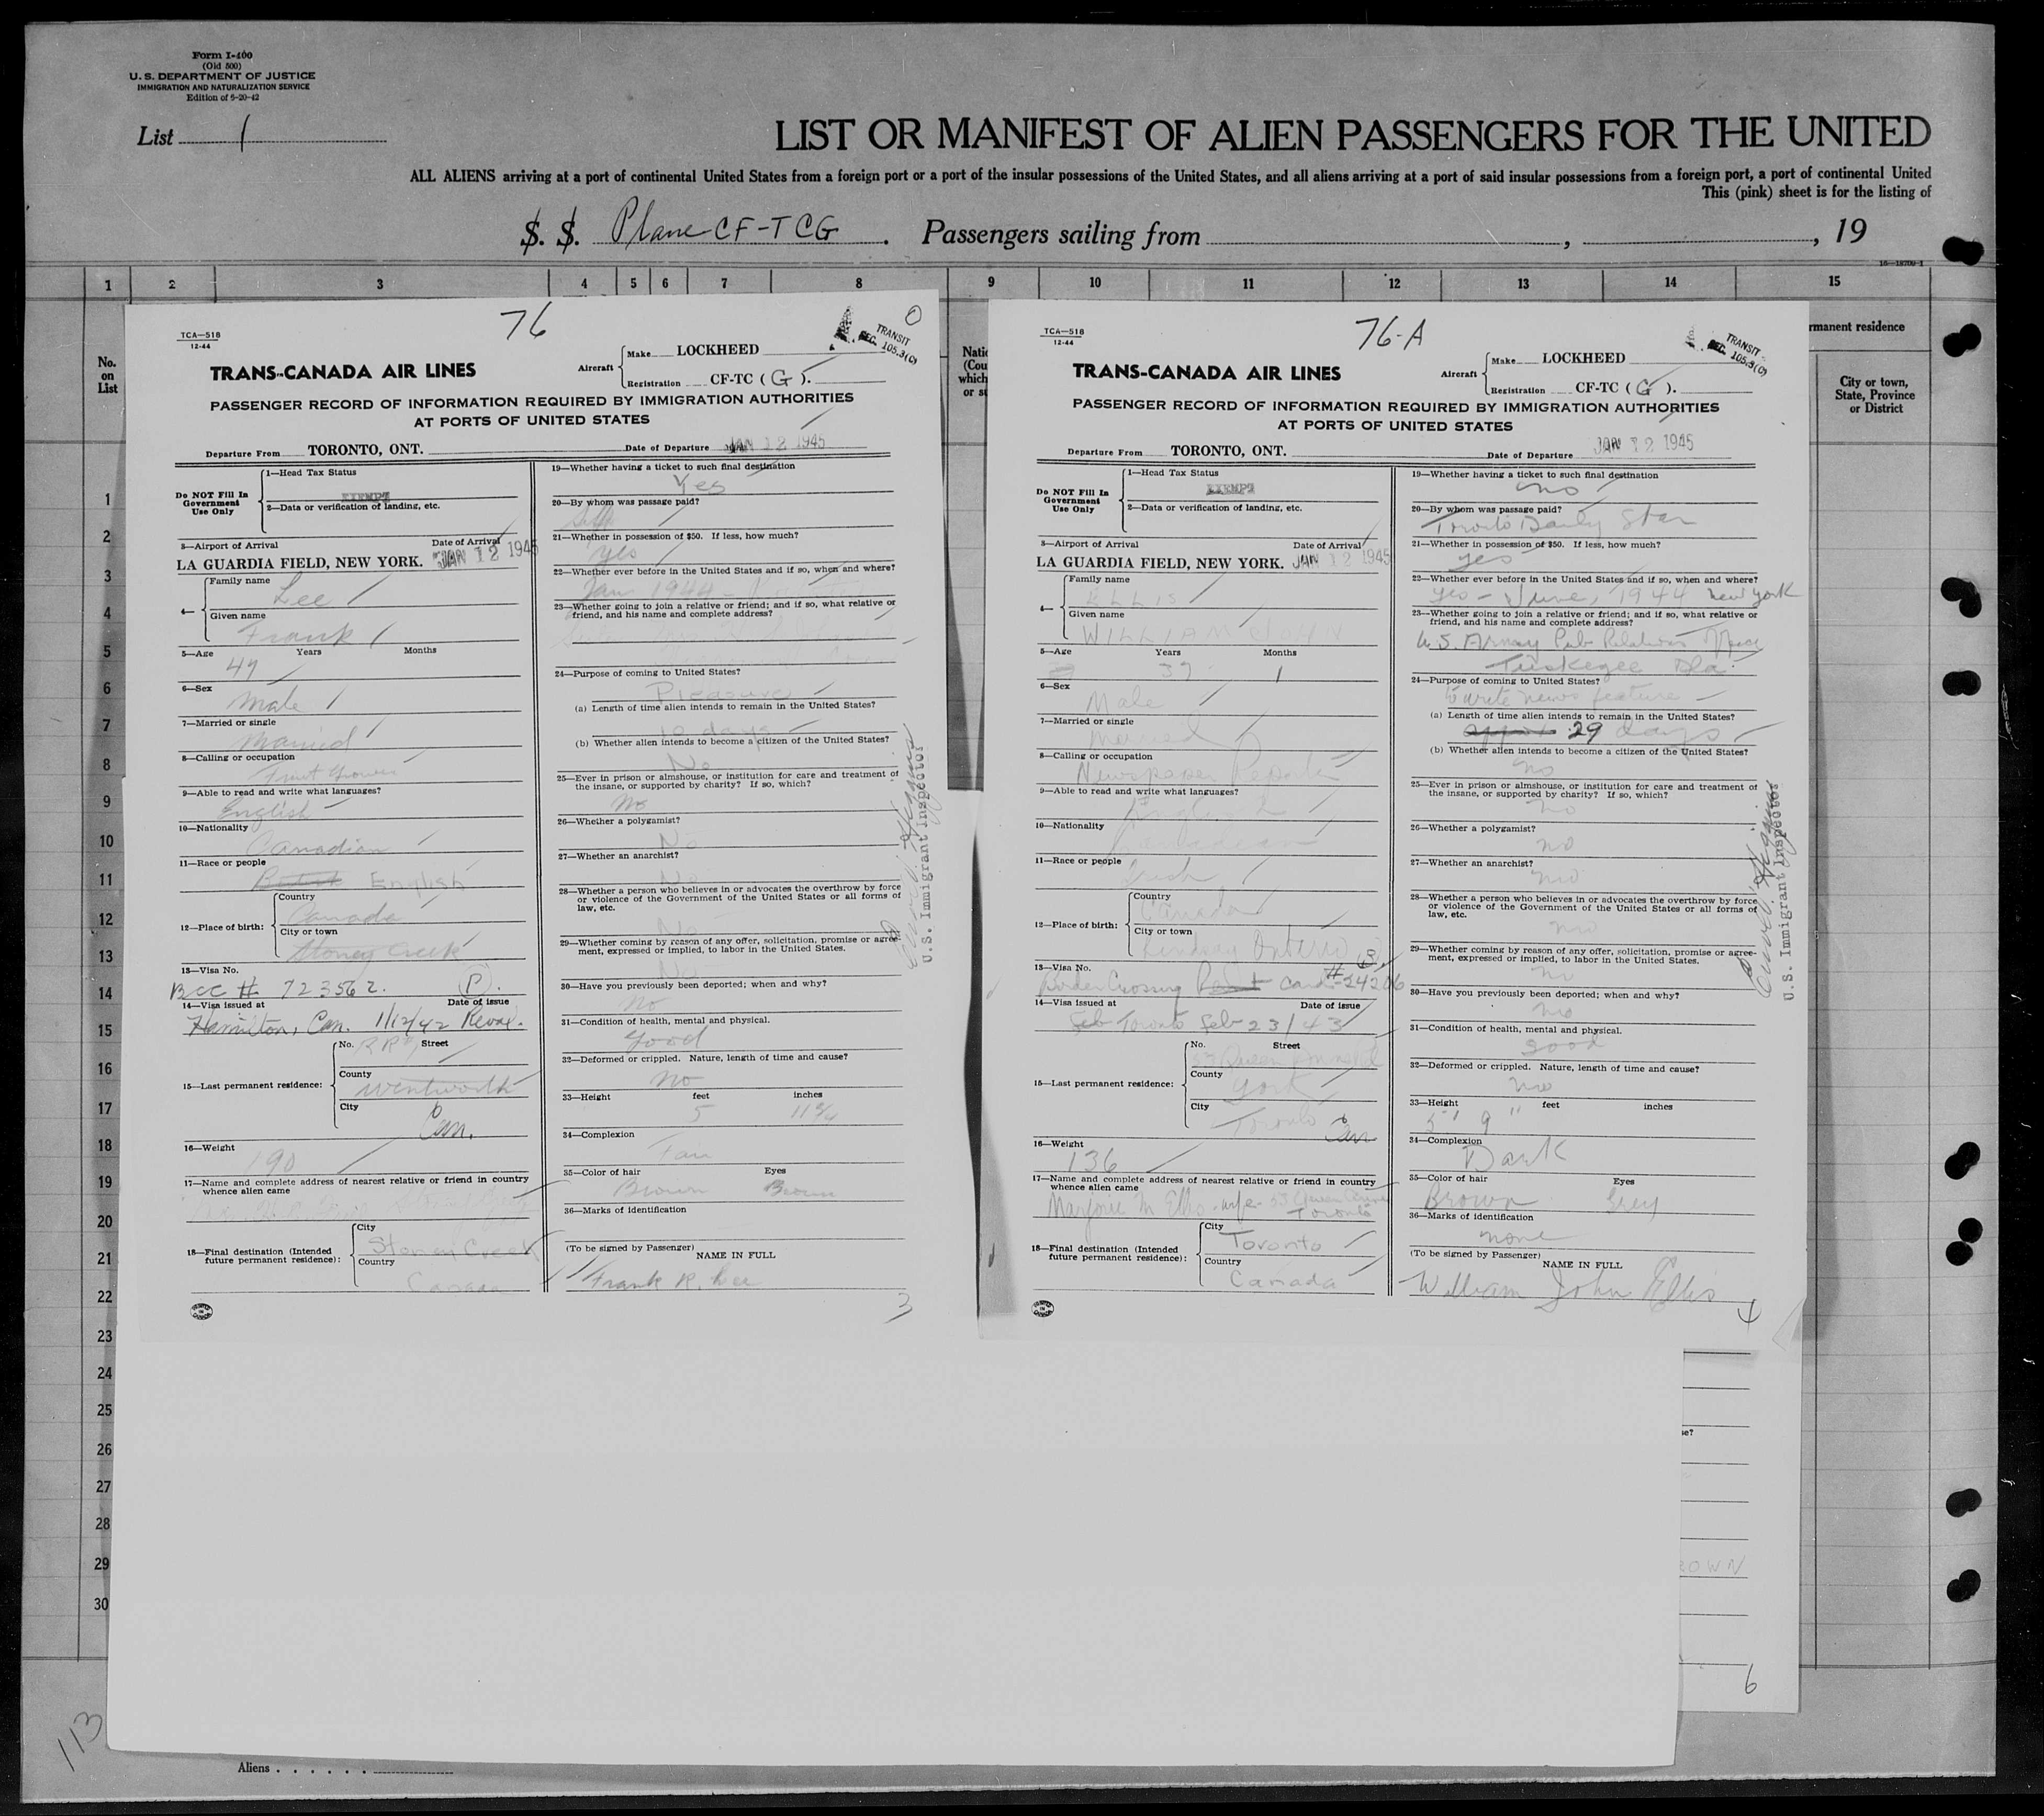 Form I-400
(Old 500)
U. S. DEPARTMENT OF JUSTICE
IMMIGRATION AND NATURALIZATION SERVICE
Edition of 5-20-42
List 1
LIST OR MANIFEST OF ALIEN PASSENGERS FOR THE UNITED
ALL ALIENS arriving at a port of continental United States from a foreign port or a port of the insular possessions of the United States, and all aliens arriving at a port of said insular possessions from a foreign port, a port of continental United
This (pink) sheet is for the listing of
S. S. Plane CF-TCG . Passengers sailing from , , 19
16—18700-1
1 2 3 4 5 6 7 8 9 10 11 12 13 14 15
No.
on
List
1
2
3
4
5
6
7
8
9
10
11
12
13
14
15
16
17
18
19
20
21
22
23
24
25
26
27
28
29
30
76 0
TCA—518
12-44
TRANSIT
SEC. 105.3(C)
TRANS-CANADA AIR LINES
Aircraft
Make LOCKHEED
Registration CF-TC ( G ).
PASSENGER RECORD OF INFORMATION REQUIRED BY IMMIGRATION AUTHORITIES
AT PORTS OF UNITED STATES
Departure From TORONTO, ONT. Date of Departure JAN 12 1945
Do NOT Fill In
Government
Use Only
1—Head Tax Status
EXEMPT
2—Data or verification of landing, etc.
3—Airport of Arrival Date of Arrival
LA GUARDIA FIELD, NEW YORK. JAN 12 1945
4—
Family name
Lee
Given name
Frank
5—Age Years Months
47
6—Sex
Male
7—Married or single
Married
8—Calling or occupation
Fruit Grower
9—Able to read and write what languages?
English
10—Nationality
Canadian
11—Race or people
English
12—Place of birth:
Country
Canada
City or town
Stoney Creek
13—Visa No.
BCC # 723562. (P).
14—Visa issued at Date of issue
Hamilton, Can. 1/12/42 Reval.
15—Last permanent residence:
No. Street
RR
County
Wentworth
City
Can.
16—Weight
190
17—Name and complete address of nearest relative or friend in country
whence alien came
18—Final destination (Intended
future permanent residence):
City
Stoney Creek
Country
Canada
19—Whether having a ticket to such final destination
Yes
20—By whom was passage paid?
Self
21—Whether in possession of $50. If less, how much?
Yes
22—Whether ever before in the United States and if so, when and where?
Jan 1944 -
23—Whether going to join a relative or friend; and if so, what relative or
friend, and his name and complete address?
24—Purpose of coming to United States?
Pleasure
(a) Length of time alien intends to remain in the United States?
10 days
(b) Whether alien intends to become a citizen of the United States?
No
25—Ever in prison or almshouse, or institution for care and treatment of
the insane, or supported by charity? If so, which?
No
26—Whether a polygamist?
No
27—Whether an anarchist?
No
28—Whether a person who believes in or advocates the overthrow by force
or violence of the Government of the United States or all forms of
law, etc.
No
29—Whether coming by reason of any offer, solicitation, promise or agree-
ment, expressed or implied, to labor in the United States.
No
30—Have you previously been deported; when and why?
No
31—Condition of health, mental and physical.
Good
32—Deformed or crippled. Nature, length of time and cause?
No
33—Height feet inches
5 11¾
34—Complexion
Fair
35—Color of hair Eyes
Brown Brown
36—Marks of identification
(To be signed by Passenger) NAME IN FULL
Frank R. Lee
3
U.S. Immigrant Inspector
76-A
TCA—518
12-44
TRANSIT
SEC. 105.3(C)
TRANS-CANADA AIR LINES
Aircraft
Make LOCKHEED
Registration CF-TC ( G ).
PASSENGER RECORD OF INFORMATION REQUIRED BY IMMIGRATION AUTHORITIES
AT PORTS OF UNITED STATES
Departure From TORONTO, ONT. Date of Departure JAN 12 1945
Do NOT Fill In
Government
Use Only
1—Head Tax Status
EXEMPT
2—Data or verification of landing, etc.
3—Airport of Arrival Date of Arrival
LA GUARDIA FIELD, NEW YORK. JAN 12 1945
4—
Family name
ELLIS
Given name
WILLIAM JOHN
5—Age Years Months
37 1
6—Sex
Male
7—Married or single
Married
8—Calling or occupation
Newspaper Reporter
9—Able to read and write what languages?
English
10—Nationality
Canadian
11—Race or people
Irish
12—Place of birth:
Country
Canada
City or town
Lindsay Ontario
13—Visa No.
Border Crossing Card #24206
14—Visa issued at Date of issue
Feb Toronto Feb 23/43
15—Last permanent residence:
No. Street
County
York
City
Toronto Can
16—Weight
136
17—Name and complete address of nearest relative or friend in country
whence alien came
Marjorie M Ellis - wife - 53 Queen
Toronto
18—Final destination (Intended
future permanent residence):
City
Toronto
Country
Canada
19—Whether having a ticket to such final destination
no
20—By whom was passage paid?
Toronto Daily Star
21—Whether in possession of $50. If less, how much?
yes
22—Whether ever before in the United States and if so, when and where?
yes - June, 1944 New York
23—Whether going to join a relative or friend; and if so, what relative or
friend, and his name and complete address?
U.S. Army Pub Relations Office
Tuskegee Ala.
24—Purpose of coming to United States?
to write news feature
(a) Length of time alien intends to remain in the United States?
29 days
(b) Whether alien intends to become a citizen of the United States?
no
25—Ever in prison or almshouse, or institution for care and treatment of
the insane, or supported by charity? If so, which?
no
26—Whether a polygamist?
no
27—Whether an anarchist?
no
28—Whether a person who believes in or advocates the overthrow by force
or violence of the Government of the United States or all forms of
law, etc.
no
29—Whether coming by reason of any offer, solicitation, promise or agree-
ment, expressed or implied, to labor in the United States.
no
30—Have you previously been deported; when and why?
no
31—Condition of health, mental and physical.
good
32—Deformed or crippled. Nature, length of time and cause?
no
33—Height feet inches
5' 9"
34—Complexion
Dark
35—Color of hair Eyes
Brown Grey
36—Marks of identification
none
(To be signed by Passenger) NAME IN FULL
William John Ellis
4
U.S. Immigrant Inspector
rmanent residence
City or town,
State, Province
or District
se?
ROWN
6
113
Aliens